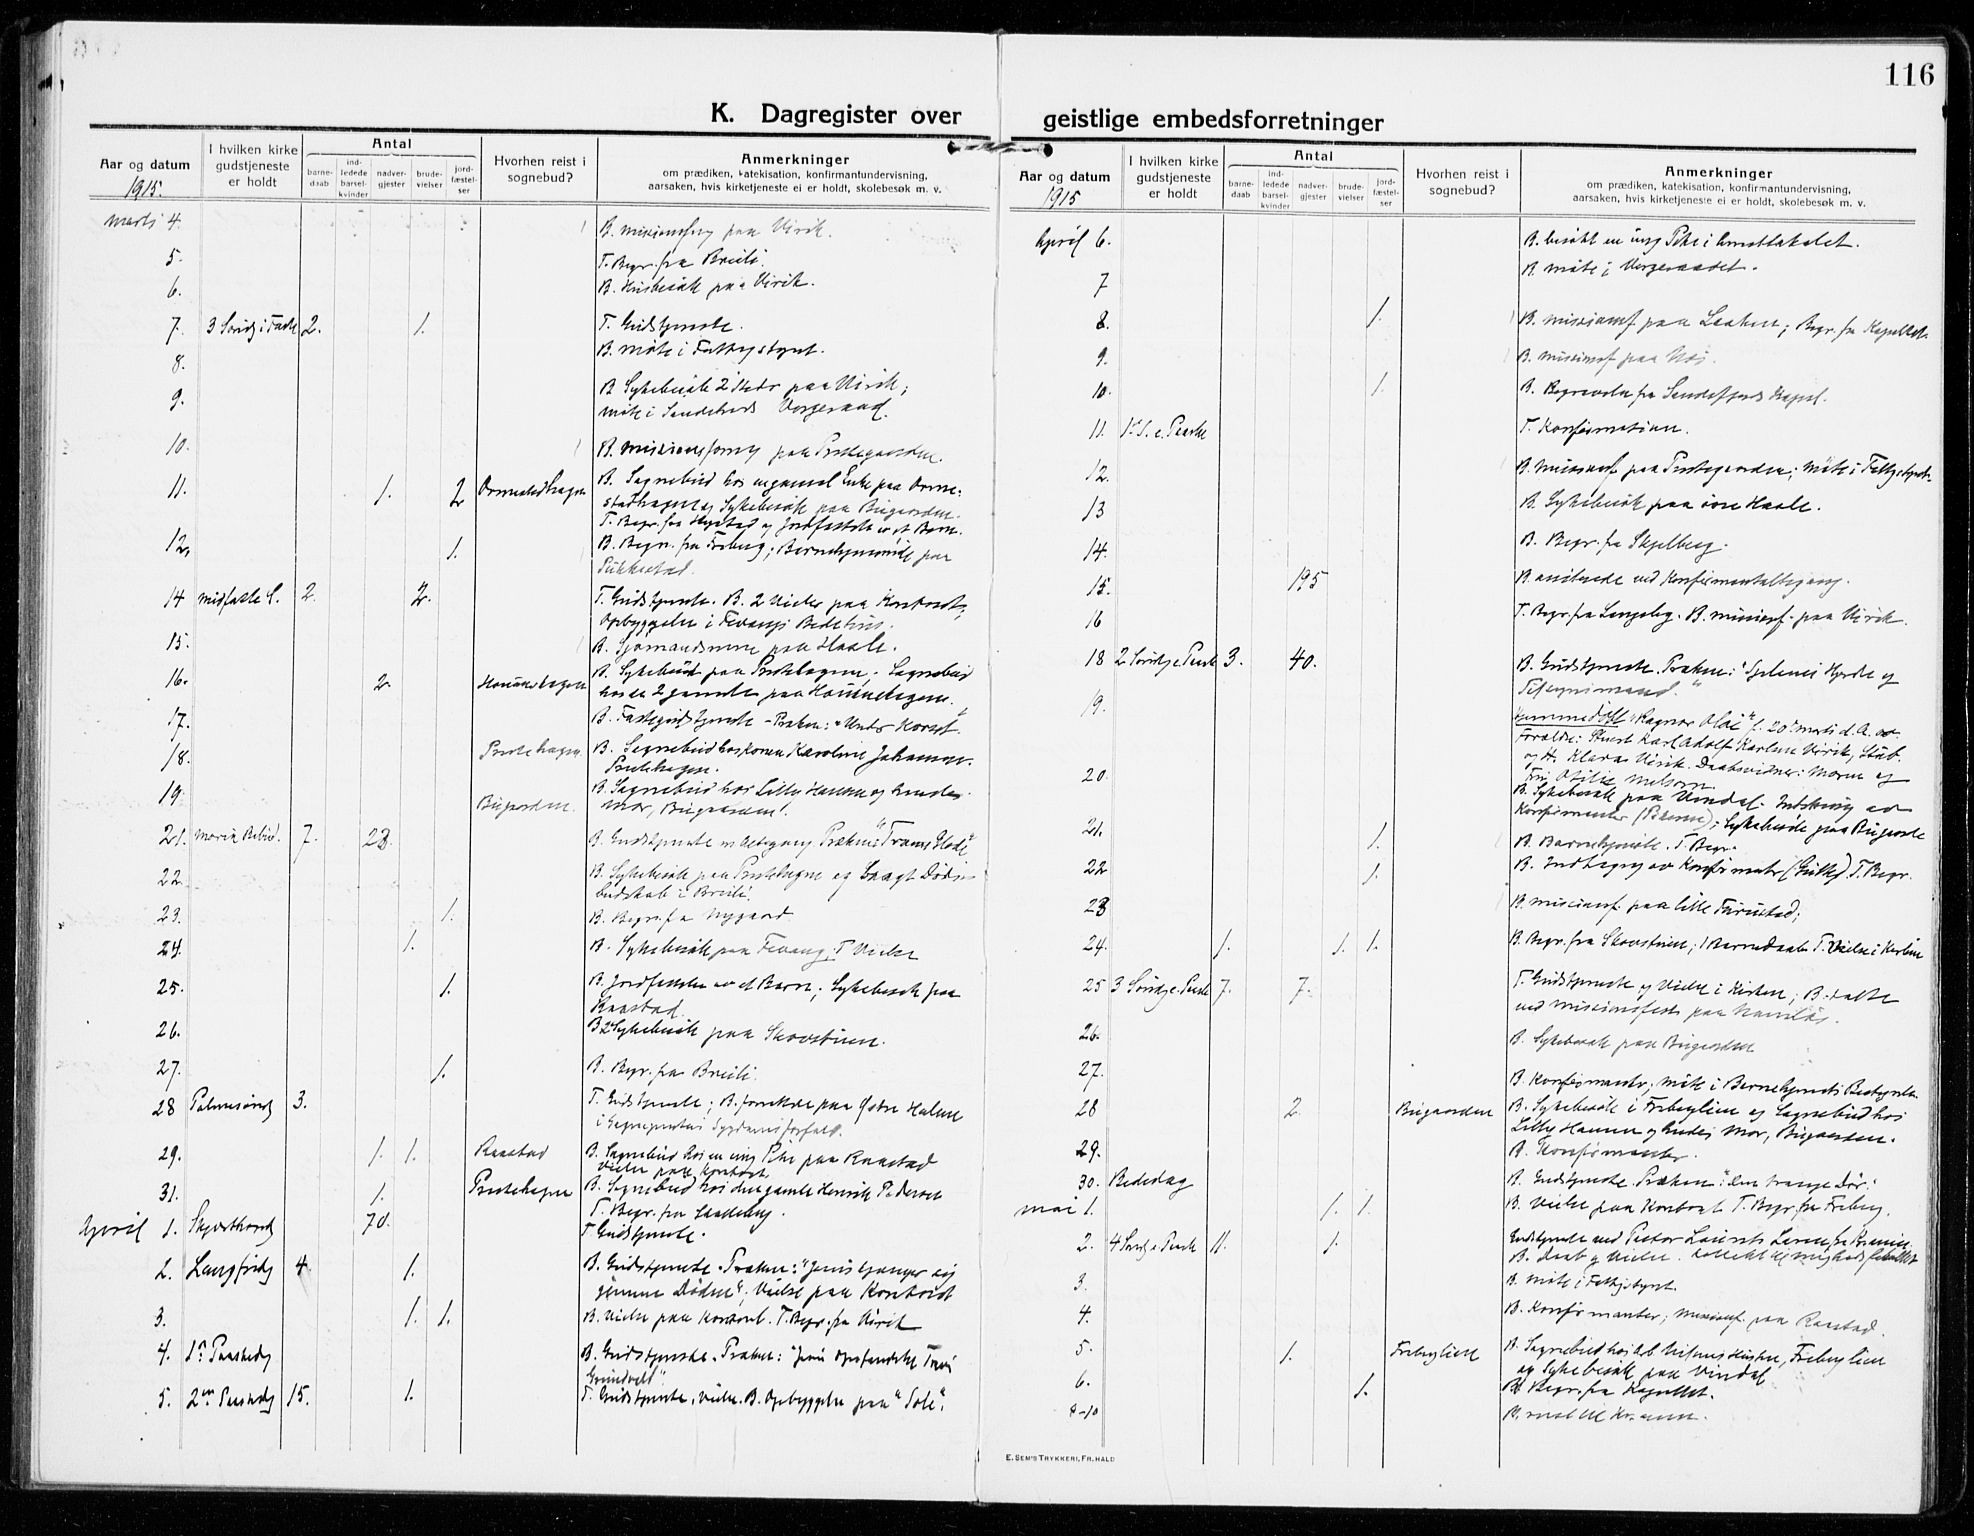 116
K. Dagregister over geistlige embedsforretninger
Aar og datum
1915.
I hvilken kirke gudstjeneste er holdt
Antal
barne-daab
ind-ledede barsel-kvinder
nadver-gjester
brude-vielser
jord-fæstel-ser
Hvorhen reist i sognebud?
Anmerkninger
om prædiken, katekisation, konfirmantundervisning,
aarsaken, hvis kirketjeneste ei er holdt, skolebesøk m. v.
marts 4. B. missionsforg paa Virik.
5. T. Begr. fra Breili.
6. B. Husbesøk paa Virik.
7. 3 Søndg i Faste 2. 1. T. Gudstjeneste.
8. B. Møte i Fattigstyret.
9. B Sykebesøk 2 Steder paa Virik;
møte i Sandeherds Vergeraad.
10. B. missionsforng paa Prestegaarden.
11. 1. 2 Ormestadhagen B. Sognebud hos en gammel Enke paa Orme-
stadhagen og Sykebesøk paa Bugaarden.
T. Begr. fra Hystad og Jordfæstelse av et Barn.
12. 1. B. Begr. fra Freberg; Barnehjemsmøte paa
Pukkestad.
14 Midfaste S. 2. 2. T. Gudstjeneste. B. 2 Vielser paa Kontoret;
Opbyggelse i Fevangs Bedehus.
15. B. Sjømandsmøte paa Haale.
16. 2. Haunehagen B. Sykebesøk paa Prestehagen; Sognebud
hos 2 gamle paa Haunehagen.
17. B. Fastegudstjeneste - Præken: "Under Korset".
18. Prestehagen. B. Sognebud hos konen Karoline Johansen
Prestehagen.
19. Bugaarden. B. Sognebud hos Lilly Hansen og hendes
mor, Bugaarden.
21. Mariæ Bebud. 7. 23. B. Gudstjeneste m. Altergang Præken: "Troens Glæde"
22. B. Sykebesøk paa Prestehagen og bragt Døds-
budskab i Breili.
23. 1. B. Begr. fra Nygaard.
24. 1. B. Sykebesøk paa Fevang. T. Vielse
25. 1. B. Jordfæstelse av et Barn; Sykebesøk paa
Raastad.
26. B 2 Sykebesøk paa Skovstuen.
27. 1. B. Begr. fra Breili.
28 Palmesøndg 3. T. Gudstjeneste; B. forrettede paa Østre Halsen
i Sogneprestens Sygdomsforfald.
29. 1. 1. Raastad B. Sognebud hos en ung Pike paa Raastad
Vielse paa Kontoret.
31. 1. Prestehagen B. Sognebud hos den gamle Henrik Pedersen
T. Begr. fra
April 1. Skjærthorsdg 70. T. Gudstjeneste.
2. Langfredg 4. 1. B. Gudstjeneste. Præken: "Jesus gjennem Døden"; Vielse paa Kontoret
3. 1. 1. B. Vielse paa Kontoret. T. Begr. fra Virik
4. 1ste Paaskedg B. Gudstjeneste. Præken: "Jesu Opstandelse Troens
Grundvold".
5. 2en Paaskedg 15. 1. T. Gudstjeneste, Vielse. B. Opbyggelse paa "Sole".
Aar og datum
1915
I hvilken kirke gudstjeneste er holdt
Antal
barne-daab
ind-ledede barsel-kvinder
nadver-gjester
brude-vielser
jord-fæstel-ser
Hvorhen reist i sognebud?
Anmerkninger
om prædiken, katekisation, konfirmantundervisning,
aarsaken, hvis kirketjeneste ei er holdt, skolebesøk m. v.
April 6. B. besøkt en ung Pike i Arrestlokalet.
7 B. møte i Vergeraadet.
8. 1. B. missionsf paa ; Begr. fra Kapellet.
9. B. missionsf paa
10. 1. B. Begravelse fra Sandefjords Kapel.
11. 1ste S. e. Paaske T. Konfirmation.
12. B. Missionsf. paa Prestegaarden; Møte i Fattigstyret.
13 B. Sykebesøk paa øvre Haale.
14. B. Begr. fra Skjelberg.
15. 195 B. assisterede ved Konfirmantaltergang.
16 T. Begr. fra . B. missionsf. paa Virik.
18 2 Søndg e. Paaske 3. 40. B. Gudstjeneste. Præken: "Sjelenes Hyrde og
Tilsynsmand."
19. Hjemmedøbt "Ragnar Olai" f. 20de marts d. A. av
Forældre: Karl Adolf Karlsen Virik, Stub.
og H. Klara Virik. Daabsvidner: Moren og
20. B. Sykebesøk paa Vindal. Indskrivng av
Konfirmanter ; Sykebesøk paa Bugaarden
21. 1. B. Barnehjemsmøte. T. Begr.
22 1. B. Indtagng av Konfirmanter T. Begr.
23 B. missionsf. paa lille Furustad;
24. 1. 1. 1. B. Begr. fra Skovstuen; 1 Barnedaab T. Vielse i Kirken
25 3 Søndg e. Paaske 7. 7. T. Gudstjeneste og Vielse i Kirken; B. talte
ved Missionsfest paa
26. B. Sykebesøk paa Bugaarden
27. B. Konfirmanter; Møte i Barnehjemmets Bestyrelse.
28 2. Bugaarden B. Sykebesøk i Freberglien og Sognebud hos
Lilly Hansen og hendes Mor, Bugaarden.
29. B. Konfirmanter.
30. Bededag B. Gudstjeneste. Præken: "Den trange Dør".
mai 1. 1. 1. B. Vielse paa Kontoret T. Begr. fra Freberg.
2. 4 Søndg e. Paaske 11. 1. Gudstjeneste ved Pastor Laurits Larsen fra
B. Daab og Vielse.
3. B. Møte i Fattigstyret.
4. B. Konfirmanter; Missionsf. paa Raastad.
5. 1. Freberglien B. Sognebud hos Hustru, Freberglien
og Sykebesøk paa Vindal
6. 1. B. Begr. fra Kapellet.
8-10 B. reist til
E. SEM'S TRYKKERI, FR.HALD